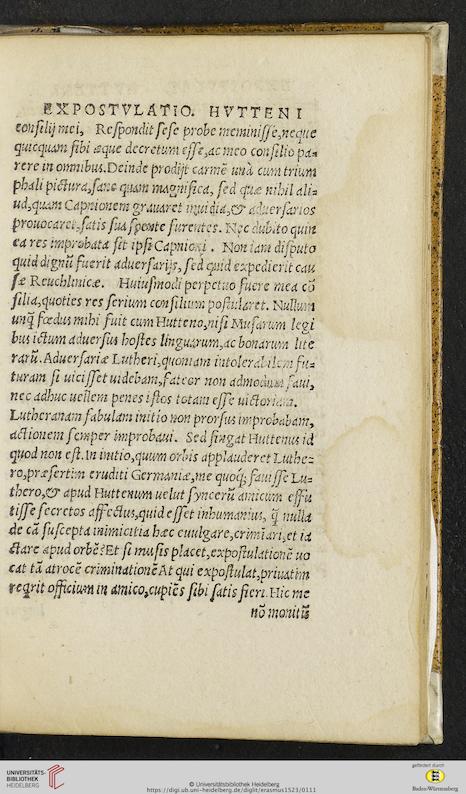 EXPOSTVLATIO. HVTTENI
consilij mei, Respondit sese probe meminisse, neque
quicquam sibi æque decretum esse, ac meo consilio pa=
rere in omnibus. Deinde prodijt carmē unà cum trium
phali pictura, sane quam magnifica, sed quæ nihil ali=
ud, quam Capnionem grauaret inuidia, & aduersarios
prouocaret, satis sua sponte furentes. Nec dubito quin
ea res improbata sit ipsi Capnioni. Non iam disputo
quid dignū fuerit aduersarijs, sed quid expedierit cau
sæ Reuchlinicæ. Huiusmodi perpetuo fuere mea cō
silia, quoties res serium consilium postularet. Nullum
unq̃ fœdus mihi fuit cum Hutteno, nisi Musarum legi
bus ictum aduersus hostes linguarum, ac bonarum lite
rarū. Aduersariæ Lutheri, quoniam intolerabilem fu=
turam si uicisset uidebam, fateor non admodum faui,
nec adhuc uellem penes istos totam esse uictoriam.
Lutheranam fabulam initio non prorsus improbabam,
actionem semper improbaui. Sed fingat Huttenus id
quod non est. In initio, quum orbis applauderet Luthe=
ro, præsertim eruditi Germaniæ, me quoq; fauisse Lu=
thero, & apud Huttenum uelut synceru amicum effu
tisse secretos affectus, quid esset inhumanius, q̃ nulla
de cā suscepta inimicitia hæc euulgare, crimiari, et ia
ctare apud orbē? Et si musis placet, expostulationē uo
cat tā atrocē criminationē At qui expostulat, priuatim
reqrit officium in amico, cupiēs sibi satis fieri. Hic me
nō monitū
UNIVERSITÄTS-
BIBLIOTHEK
HEIDELBERG
© Universitätsbibliothek Heidelberg
https://digi.ub.uni-heidelberg.de/diglit/erasmus1523/0111
gefördert durch
Baden-Württemberg